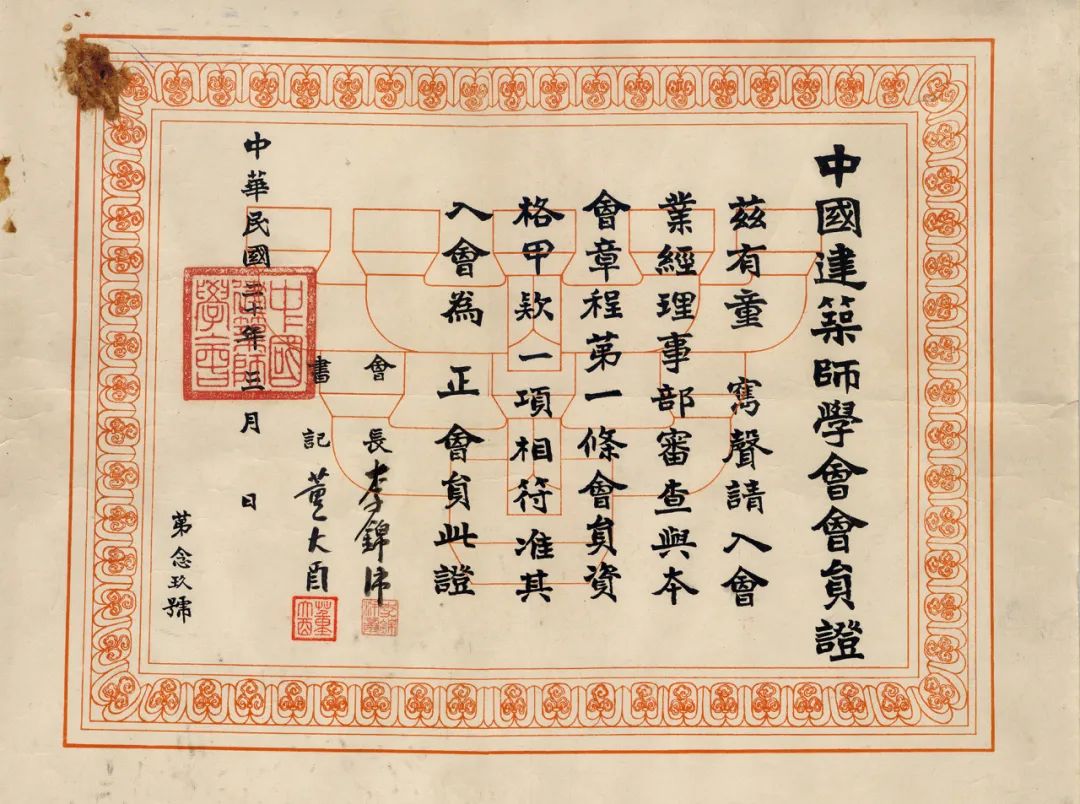 中國建築師學會會員證
茲有童寯聲請入會
業經理事部審查與本
會章程第一條會員資
格甲款一項相符准其
入會為正會員此證
會長李錦沛
書記董大酉
中華民國二十年三月 日
中國建築師學會
第念玖號